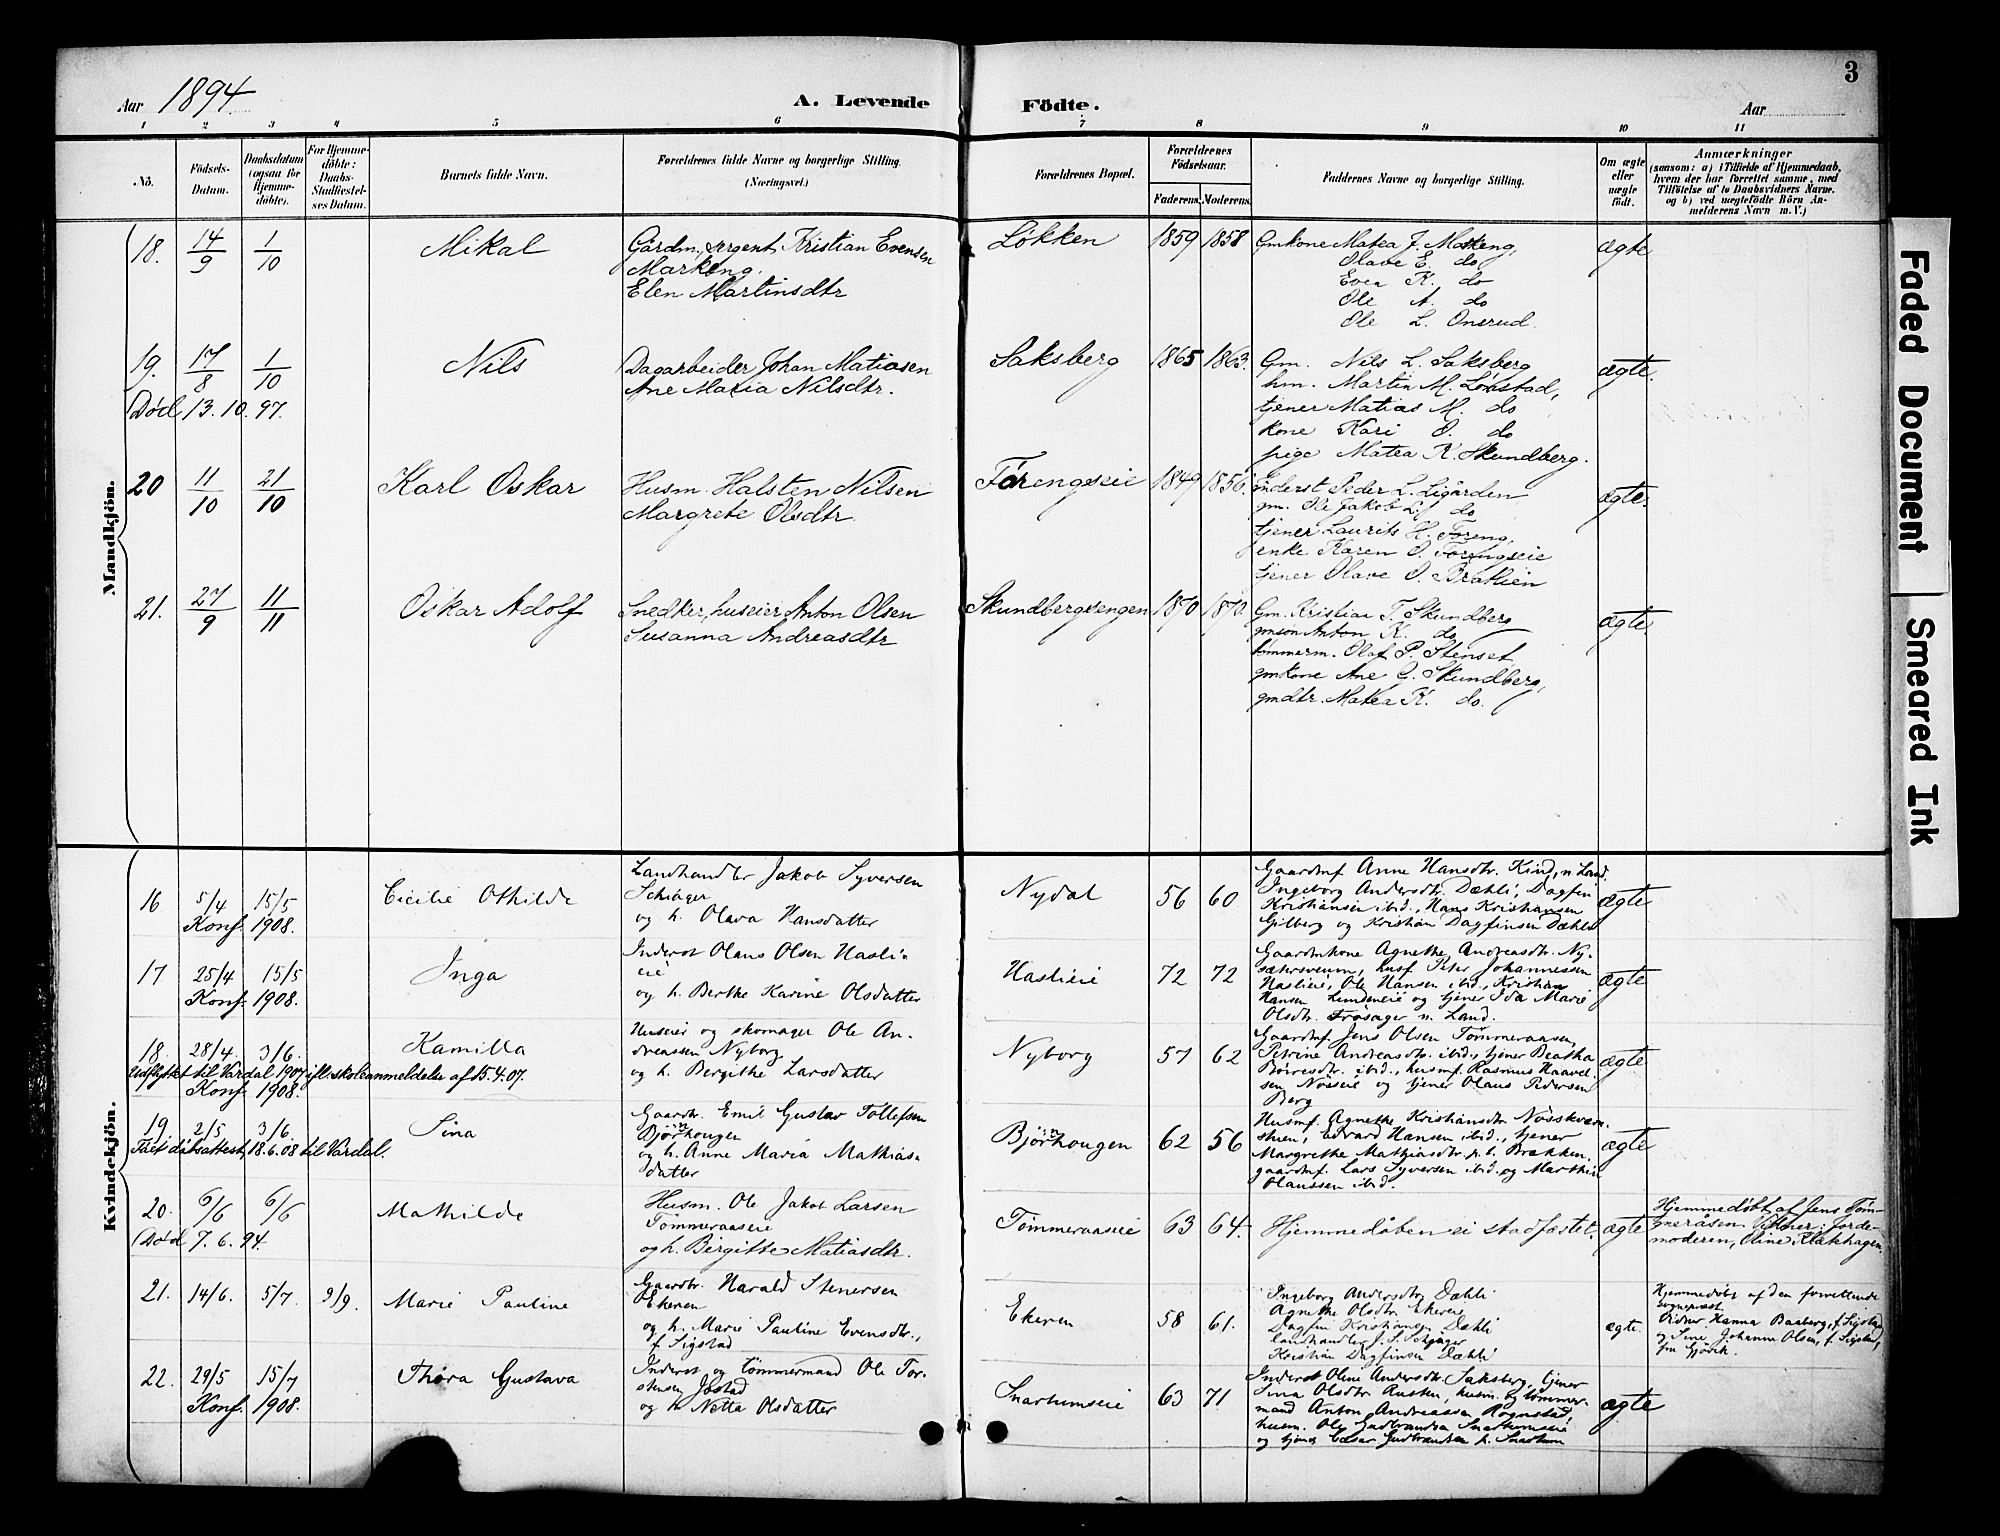 Aar 1894
A. Levende Födte.
Aar
3
1 2 3 4 5 6 7 8 9 10 11
No.
Födsels-Datum.
Daabsdatum (ogsaa for Hjemmedöbte).
For Hjemmedöbte: Daabs-Stadfæstelses Datum.
Barnets fulde Navn.
Forældrenes fulde Navne og borgerlige Stilling. (Næringsvei.)
Forældrenes Bopæl.
Forældrenes Födselsaar.
Faderens. Moderens.
Faddernes Navne og borgerlige Stilling.
Om ægte eller uægte födt.
Anmærkninger
(saasom: a) i Tilfælde af Hjemmedaab,
hvem der har forrettet samme, med
Tilföielse af to Daabsvidners Navne.
og b) ved uægtefödte Börn An-
melderens Navn m. V.)
Mandkjön.
18. 14/9 1/10 Mikal
Gårdm., sergent Kristian Evensen
Markeng.
Elen Martinsdtr
Løkken 1859 1858
Gmkone Matea J. Markeng,
Olave E. do
Even K. do
Ole A. do
Ole L. Onsrud.
ægte
19. 17/8 1/10 Nils
Død 13.10.97.
Dagarbeider Johan Matiasen
Ane Maria Nilsdtr.
Saksberg 1865 1863.
Gm. Nils L. Saksberg
hm. Martin M. Lønstad,
tjener Matias M. do
kone Kari O. do
pige Matea K. Skundberg.
ægte.
20 11/10 21/10 Karl Oskar
Husm. Halsten Nilsen
Margrete Olsdtr.
Forengseie 1849 1856.
inderst Peder L. Ligården
gm. Ole Jakob L. do
tjener Laurits H. Foreng,
enke Karen O. Forengseie
tjener Olave O. Bratlien
ægte.
21. 27/9 11/11 Oskar Adolf
Snedker, huseier Anton Olsen
Susanna Andreasdtr
Skundbergsengen 1870 1870.
Gm. Kristian T. Skundberg
gmson Anton K. do
tømmerm. Olaf P. Stenset
gmkone Ane G. Skundberg,
gmdtr. Matea K. do.
ægte.
Kvindekjön.
16 5/4 15/5 Cicilie Othilde
Konf. 1908.
Landhandler Jakob Syversen
Schiager
og h. Olava Hansdatter
Nydal 56 60
Gaardmf. Anne Hansdtr. Kind, n. Land.
Ingeborg Andersdtr. Dæhli, Dagfin
Kristiansen ibid., Hans Kristiansen
Gilberg og Kristian Dagfinsen Dæhli
ægte
17 25/4 15/5 Inga
Konf. 1908.
Inderst Olaus Olsen Hasli-
eie
og h. Berthe Karine Olsdatter
Haslieie 72 72
Gaardmkone Agnethe Andreasdtr. Ny-
sætersveum, husf. Peter Johannessen
Haslieie, Ole Hansen ibid., Kristian
Hansen Lundeneie og tjener Ida Marie
Olsdtr. Frøsager n. Land.
ægte
18. 28/4. 3/6. Kamilla
Udflyttet til Vardal 1907 ifl. skoleanmeldelse af 15.4.07.
Konf. 1908.
Huseier og skomager Ole An-
dreassen Nyborg
og h. Bergithe Larsdatter
Nyborg 57 62
Gaardmf. Jens Olsen Tømmeraasen,
Petrine Andreasdtr. ibid., tjener Beatha
Børresdtr. ibid., husmf. Rasmus Haavel-
sen Nøsseie og tjener Olaus Pedersen
Berg
ægte
19. 2/5 3/6. Sina
Faet dåbsattest 18.6.08 til Vardal.
Gaardbr. Emil Gustav Tollefsen
Bjørnhougen
og h. Anne Maria Mathias-
datter
Bjørnhougen 62 56
Husmf. Agnethe Kristiansdtr. Nøsskværn-
stuen, Edvard Hansen ibid., tjener
Margrethe Mathiasdtr. p. t. Brækken,
gaardmf. Lars Syversen ibid. og Marthin
Olaussen ibid.
ægte
20. 6/6 6/6 Mathilde
Død 7.6.94.
Husm. Ole Jakob Larsen
Tømmeraaseie
og h. Birgitte Matiasdtr.
Tømmeraaseie 63 64.
Hjemmedåben ei stadfæstet.
ægte
Hjemmedøbt af Jens Tøm-
meråsen. Vidner: Jorde-
moderen, Oline Klækhagen.
21. 14/6. 5/7 9/9. Marie Pauline
Gaardbr. Harald Stenersen
Ekeren
og h. Marie Pauline Evensdtr.,
f. Sigstad
Ekeren 58 61.
Ingeborg Andersdtr. Dæhli
Agnethe Olsdtr. Ekereie
Dagfin Kristiansen Dæhli
Landhandler J. S. Schiager
Kristian Dagfinsen Dæhli
ægte.
Hjemmedøbt af den forrettende
sogneprest.
Vidner Hanna Baaberg, f. Sigstad
og Sine Johanne Olsen, f. Sigstad,
fra Gjøvik.
22. 29/5 15/7 Thora Gustava
Konf. 1908.
Inderst og tømmermand Ole Tor-
stensen Jøstad
og h. Netta Olsdatter
Snartumseie 63 71
Inderst Oline Andersdtr. Saksberg, tjener
Sina Olsdtr. Rusten, husm. og tømmer-
mand Anton Andreassen Rognstad,
husm. Ole Gudbrandsen Snartumseie
og tjener Cæsar Gudbrandsen p. Snartum
ægte
Faded Document
Smeared Ink